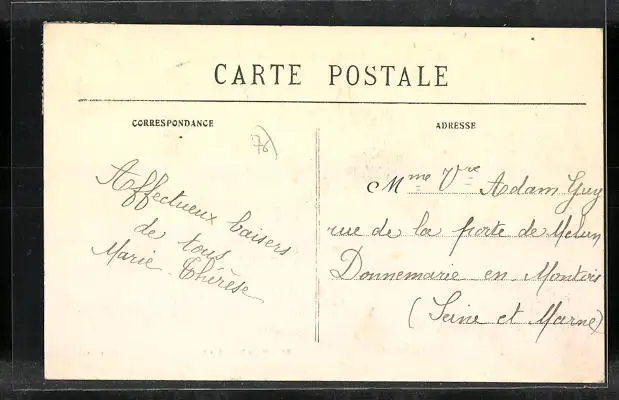 CARTE POSTALE
CORRESPONDANCE
ADRESSE
76
Affectueux baisers
de tous
Marie-Thérèse
Mme Vve Adam Guy
rue de la porte de Melun
Donnemarie en Montois
(Seine et Marne)